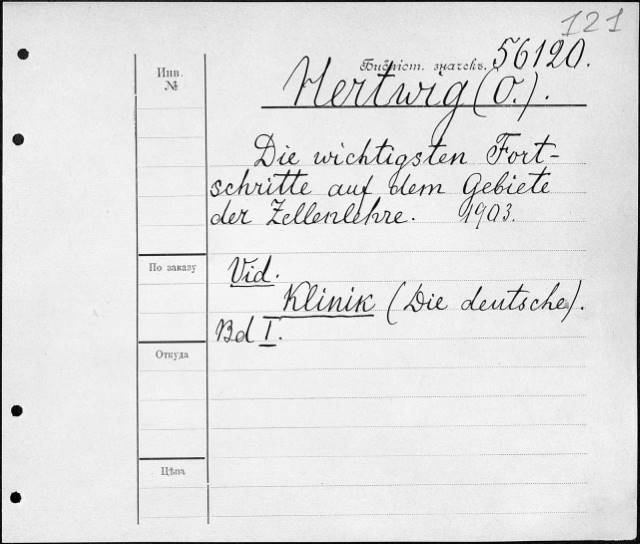 121
Инв.
№
Библіот. значекъ. 56120.
Hertwig (O.).
Die wichtigsten Fort-
schritte auf dem Gebiete
der Zellenlehre. 1903.
По заказу
Vid.
Klinik (Die deutsche).
Bd I.
Откуда
Цѣна